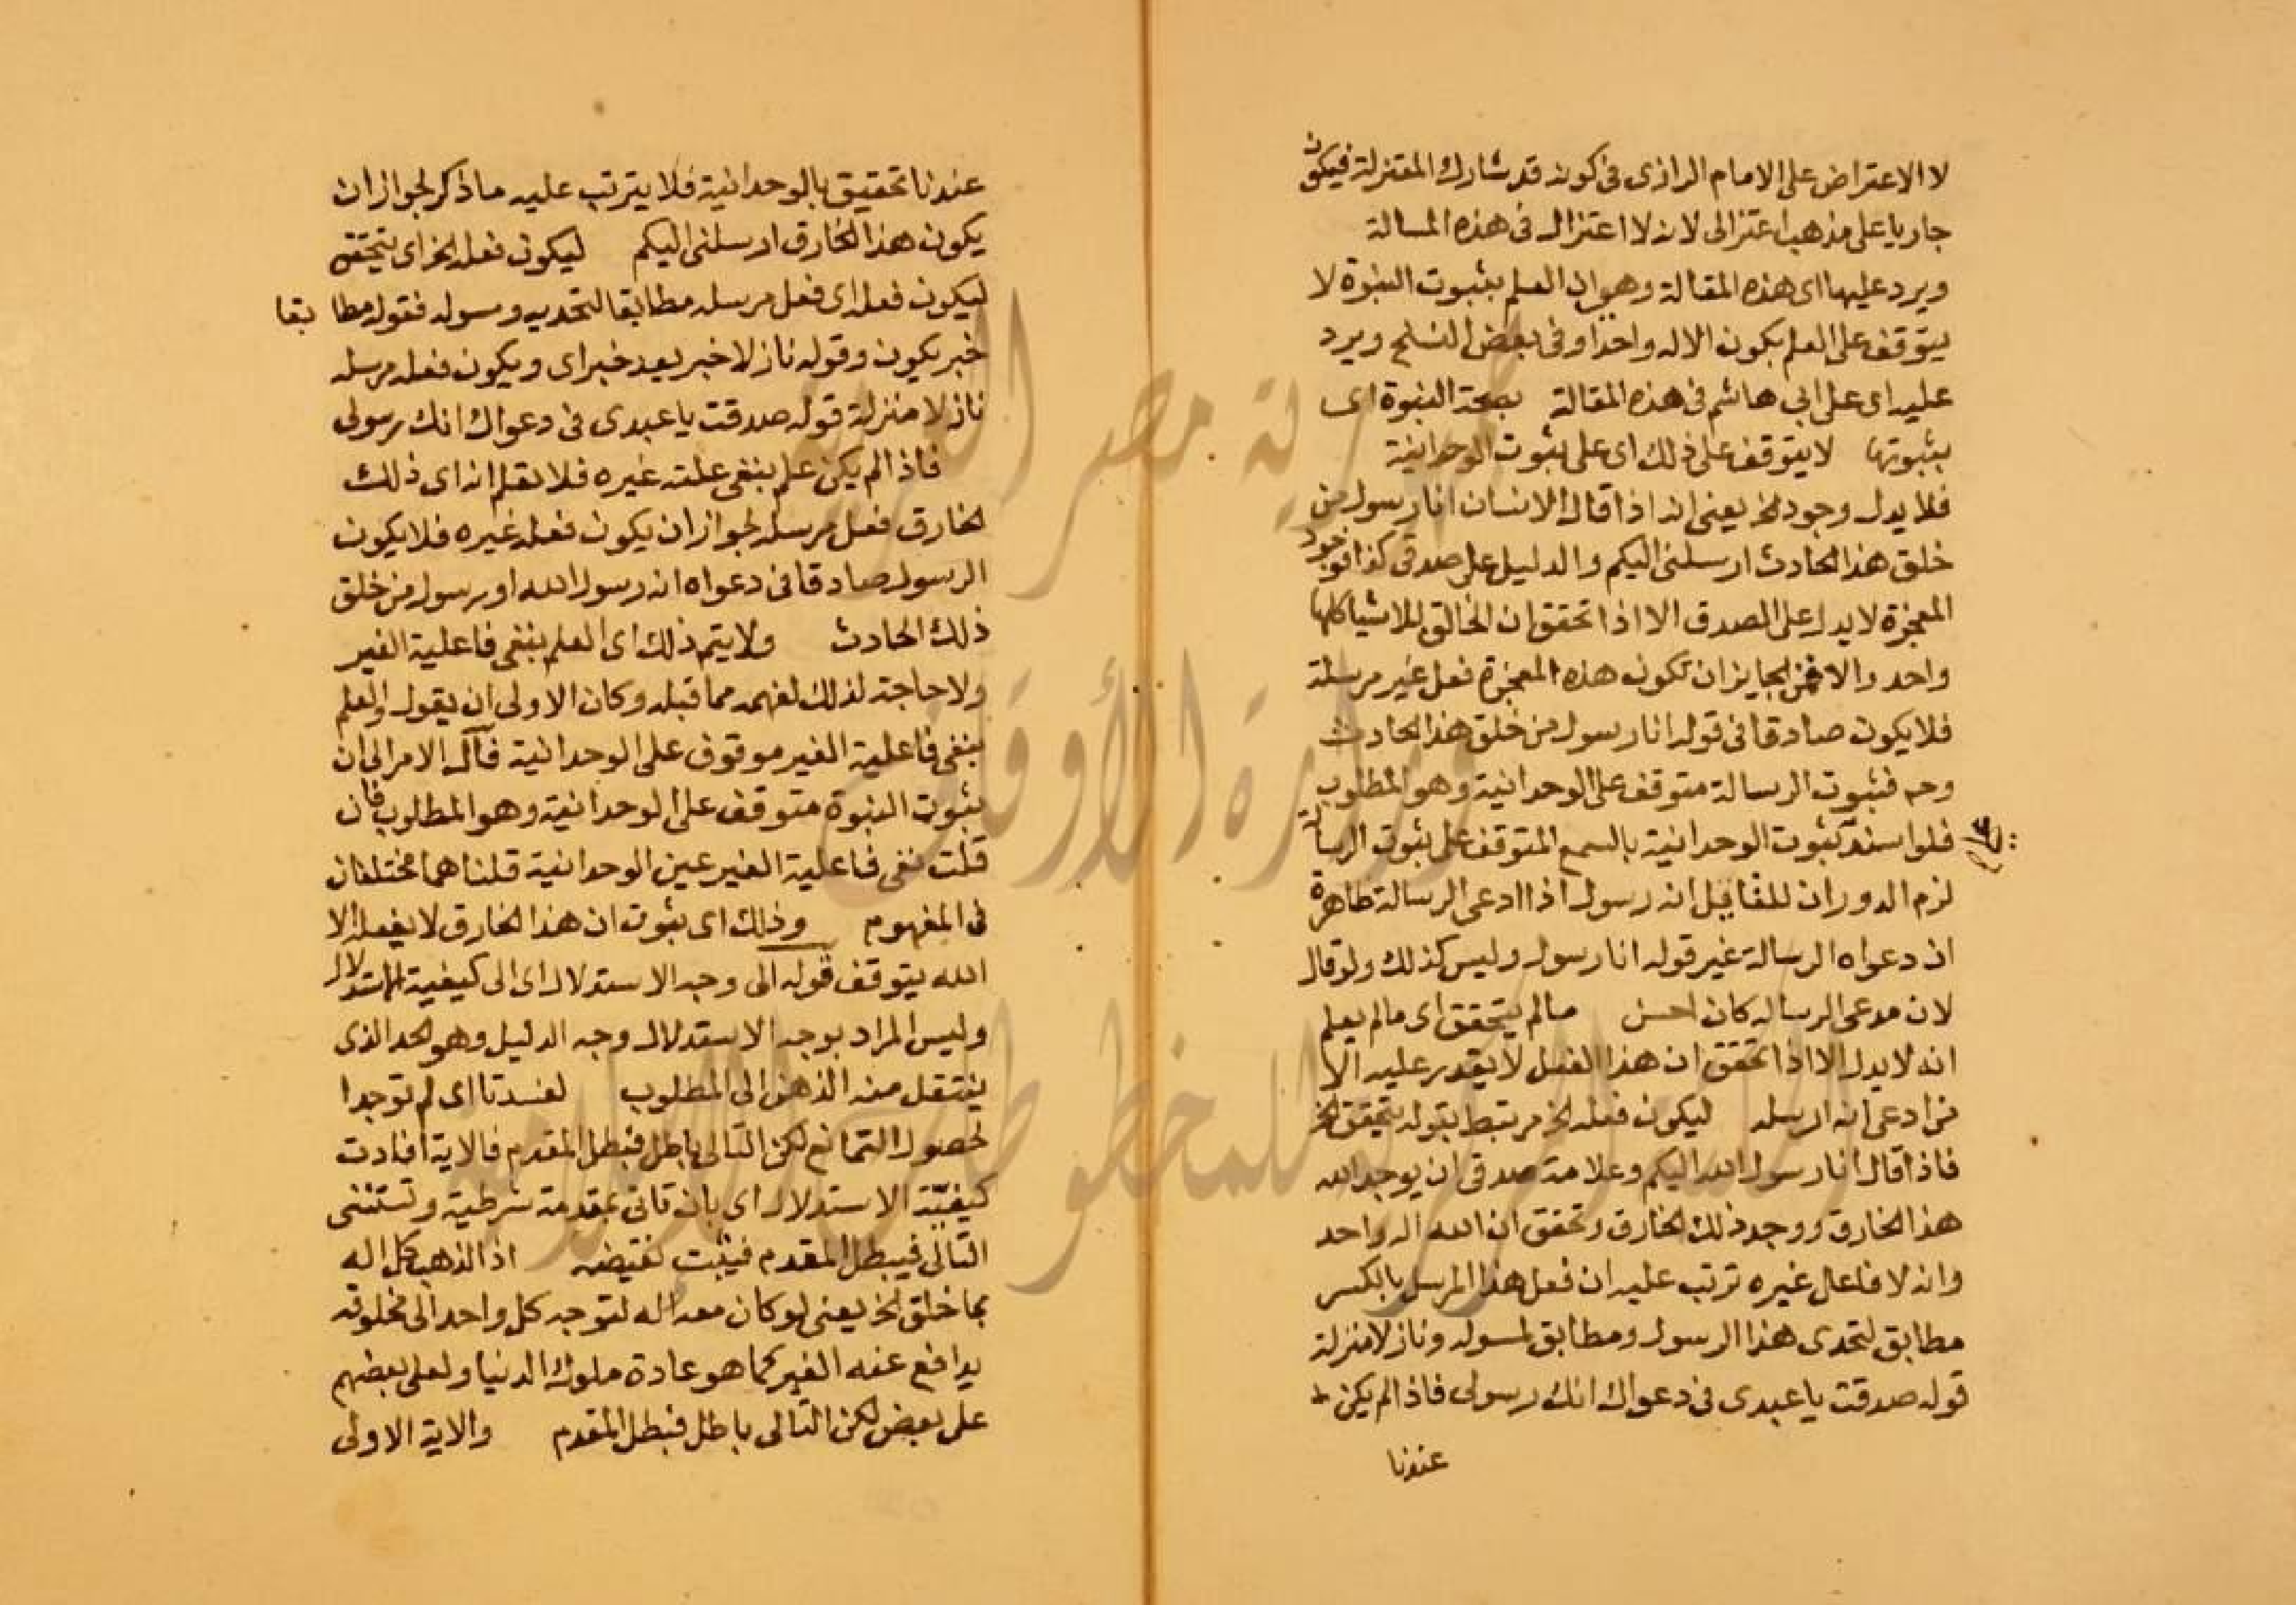 لا الاعتراض على الامام الرازى فى كونه قد شارك المعتزلة فيكون
جاريا على مذهب اعتزالى لانه لا اعتزال فى هذه المسالة
ويرد عليها اى هذه المقالة وهو ان العلم بثبوت النبوة لا
يتوقف على العلم بكون الاله واحدا وفى بعض النسخ ويرد
عليه اى على ابى هاشم فى هذه المقالة بصحة النبوة اى
بثبوتها لا يتوقف على ذلك اى على ثبوت الوحدانية
فلا يدل وجود الخ يعنى انه اذا قال الانسان انا رسول من
خلق هذا الحادث ارسلنى اليكم والدليل على صدقى كذا فوجود
المعجزة لا يدل على الصدق الا اذا تحقق ان الخالق للاشيا كلها
واحد والا فمن الجايز ان تكون هذه المعجزة فعل غير مرسله
فلا يكون صادقا فى قوله انا رسول من خلق هذا الحادث
وحـ فثبوت الرسالة متوقف على الوحدانية وهو المطلوب
فلو استند ثبوت الوحدانية بالسمع المتوقف على ثبوت الرسالة
لزم الدور ان للقايل انه رسول اذا ادعى الرسالة ظاهرة
ان دعواه الرسالة غير قوله انا رسول وليس كذلك ولو قال
لان مدعى الرساله كان احسن مالم يتحقق اى مالم يعلم
انه لا يدل الا اذا تحقق ان هذا الفعل لا يقدر عليه الا
من ادعى انه ارسله ليكون فعله الخ مرتبط بقوله يتحقق الخ
فاذا قال انا رسول الله اليكم وعلامة صدقى ان يوجد الله
هذا الخارق ووجد ذلك الخارق وتحقق ان الله اله واحد
وانه لا فاعال غيره ترتب عليه ان فعل هذا المرسل بالكسر
مطابق لتحدى هذا الرسول ومطابق لمسوله ونازلا منزلة
قوله صدقت يا عبدى فى دعواك انك رسولى فاذا لم يكن
عندنا
عندنا تحقيق بالوحدانية فلا يترتب عليه ما ذكر لجواز ان
يكون هذا الخارق ارسلنى اليكم ليكون فعله الخ اى يتحقق
ليكون فعله اى فعل مرسله مطابقا لتحديه ومسوله فقوله مطابقا
خبر يكون وقوله نازلا خبر بعد خبر اى ويكون فعل مرسله
نازلا منزلة قوله صدقت يا عبدى فى دعواك انك رسولى
فاذا لم يكن علم بنفى علته غيره فلا نعلم انه اى ذلك
الخارق فعل مرسله لجواز ان يكون فعله غيره فلا يكون
الرسول صادقا فى دعواه انه رسول الله او رسول من خلق
ذلك الحادث ولا يتم ذلك اى العلم بنفى فاعلية الغير
ولا حاجة لذلك لفهمه مما قبله وكان الاولى ان يقول والعلم
بنفى فاعلية الغير موقوف على الوحدانية فآل الامر الى ان
ثبوت النبوة متوقف على الوحدانية وهو المطلوب فان
قلت نفى فاعلية الغير عين الوحدانية قلنا هما مختلفان
فى المفهوم وذلك اى ثبوت ان هذا الخارق لا يفعله الا
الله يتوقف قوله الى وجه الاستدلال اى الى كيفية الاستدلال
وليس المراد بوجه الاستدلال وجه الدليل وهو الحد الذى
ينتقل منه الذهن الى المطلوب لفسدتا اى لم توجدا
لحصول التمانع لكن التالى باطل فبطل المقدم فالاية افادت
كيفية الاستدلال اى بان تاتى بمقدمة شرطية وتستثنى
التالى فيبطل المقدم فيثبت نقيضه اذا لذهب كل اله
بما خلق الخ يعنى لو كان معه اله لتوجه كل واحد الى مخلوقه
يدافع عنه الغير كما هو عادة ملوك الدنيا ولعلى بعضهم
على بعض لكن التالى باطل فبطل المقدم والاية الاولى
جمهورية مصر العربية
وزارة الأوقاف
للمخطوطات الإسلامية